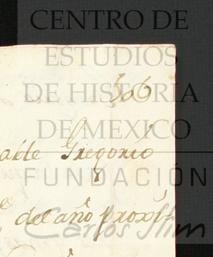 CENTRO DE
ESTUDIOS
DE HISTORIA
DE MEXICO
FUNDACIÓN
Carlos Slim
306
able Gregorio
del año proxi